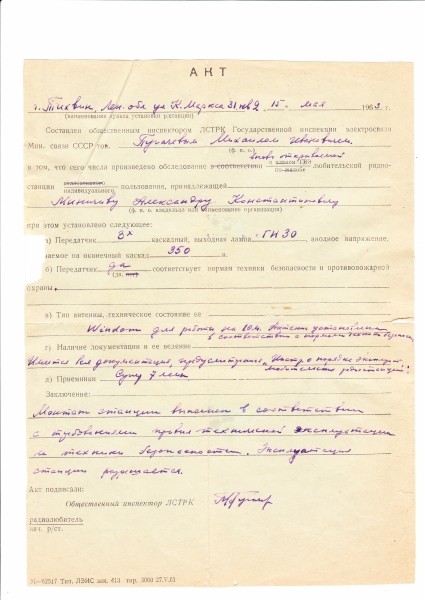 АКТ
г. Тихвин, Лен. обл ул К. Маркса 31 кв 2 15 мая 1963 г.
(наименование пункта установки ратации)
Составлен общественным инспектором ЛСТРК Государственной инспекции электросвязи
Мин. связи СССР тов. Михаилом Ивановичем
(ф. и. о.)
вновь открываемой
в том, что сего числа произведено обследование в соответствии любительской радио-
станции индивидуального пользования, принадлежащей
Александру Константиновичу
(ф. и. о. владельца или наименование организации)
при этом установлено следующее:
а) Передатчик 3х каскадный, выходная лампа ГИ30, анодное напряжение,
подаваемое на оконечный каскад 350
б) Передатчик да соответствует нормам техники безопасности и противопожарной
(да, нет)
охраны.
в) Тип антенны, техническое состояние ее
Windom для работы на 10м. установлена
в соответствии с нормами
г) Наличие документации и ее ведение
Имеется вся документация,
любительских радиостанций
д) Приемник Супер 7 ламп
Заключение:
Монтаж станции выполнен в соответствии
с требованиями правил технической эксплуатации
и техники безопасности. Эксплуатация
станции разрешается.
Акт подписали:
Общественный инспектор ЛСТРК
радиолюбитель
нач. р/ст.
М-62517 Тип. ЛЭИС зак. 413 тир. 3000 27.V.61